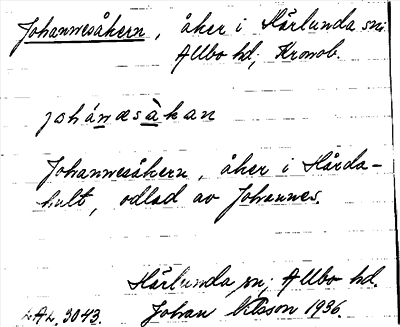 Johannesåkern, åker i Härlunda sn;
Allbo hd; Kronob.
johánæsàkan
Johannesåkern, åker i Hårda-
hult, odlad av Johannes.
Härlunda sn; Allbo hd.
LAL. 3043. Johan Nilsson 1936.